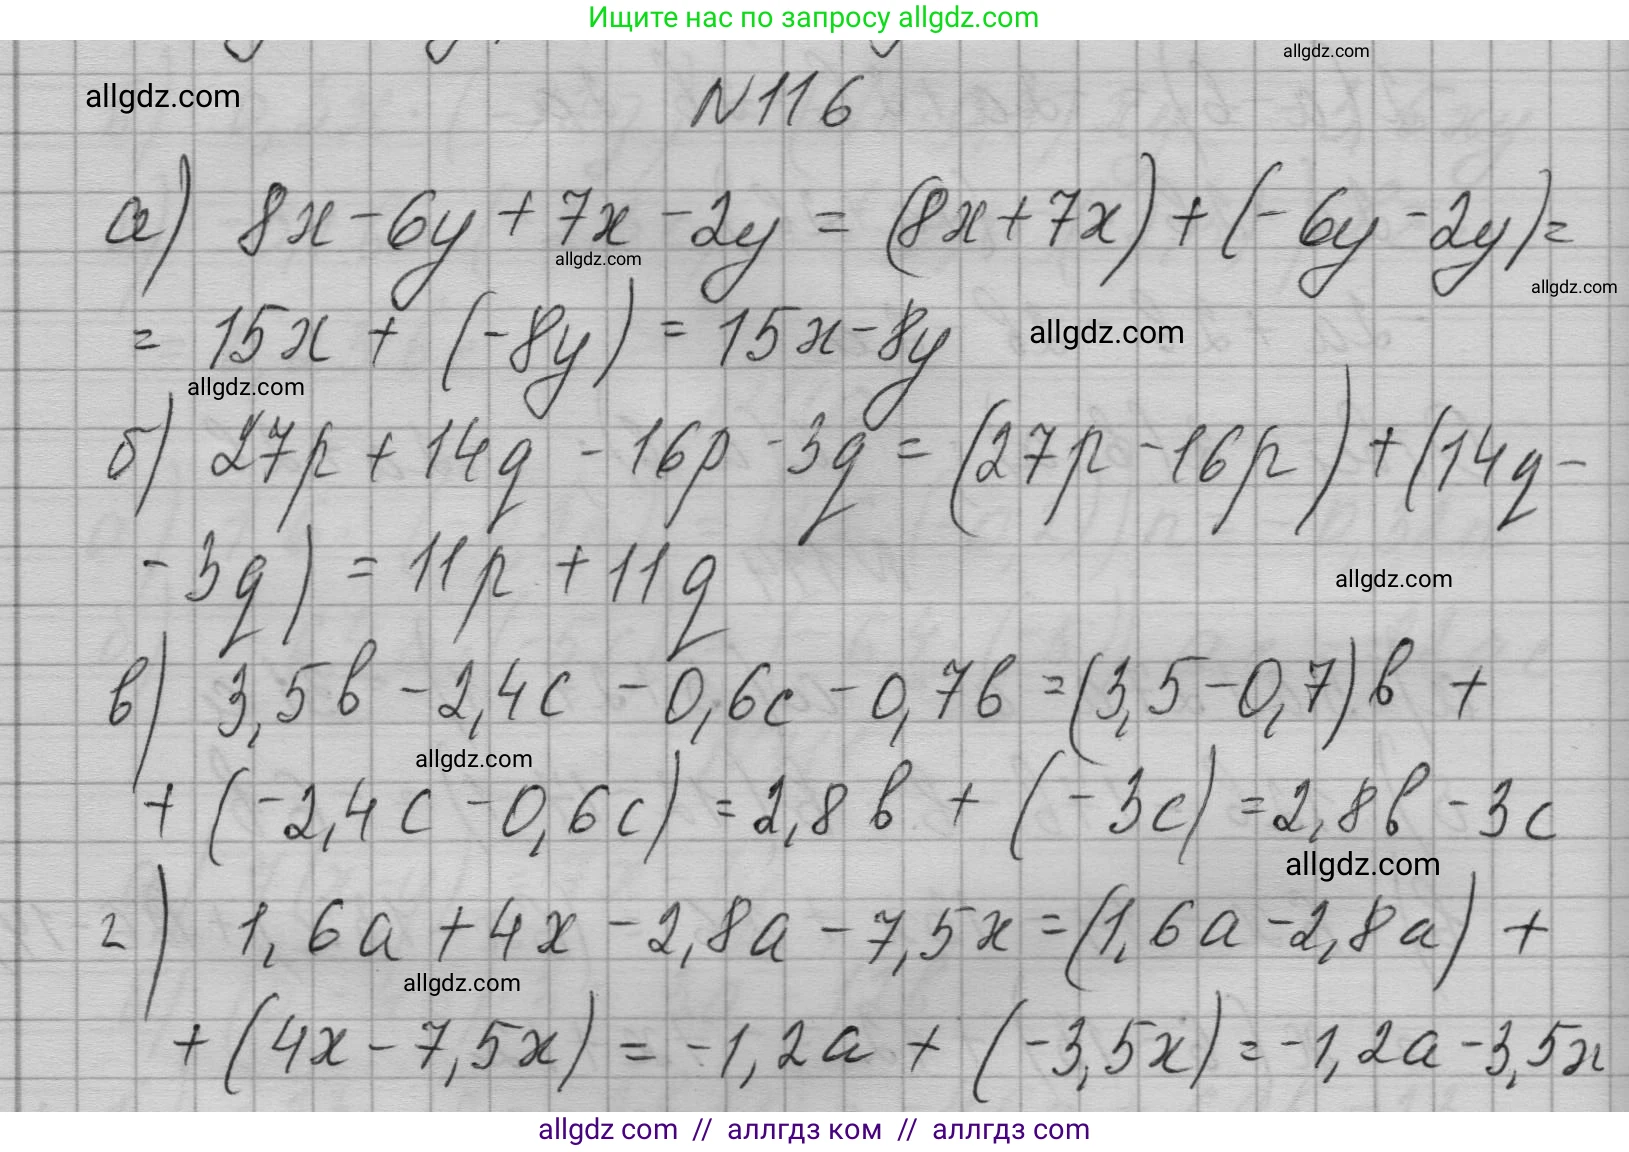 Ищите нас по запросу allgdz.com
allgdz.com
allgdz.com
N116
а) 8x - 6y + 7x - 2y = (8x + 7x) + (- 6y - 2y) =
allgdz.com
allgdz.com
= 15x + (-8y) = 15x - 8y
allgdz.com
allgdz.com
б) 27p + 14q - 16p - 3q = (27p - 16p) + (14q -
- 3q) = 11p + 11q
allgdz.com
в) 3,5b - 2,4c - 0,6c - 0,7b = (3,5 - 0,7)b +
allgdz.com
+ (-2,4c - 0,6c) = 2,8b + (-3c) = 2,8b - 3c
allgdz.com
г) 1,6a + 4x - 2,8a - 7,5x = (1,6a - 2,8a) +
allgdz.com
+ (4x - 7,5x) = -1,2a + (-3,5x) = -1,2a - 3,5x
allgdz com // аллгдз ком // аллгдз com